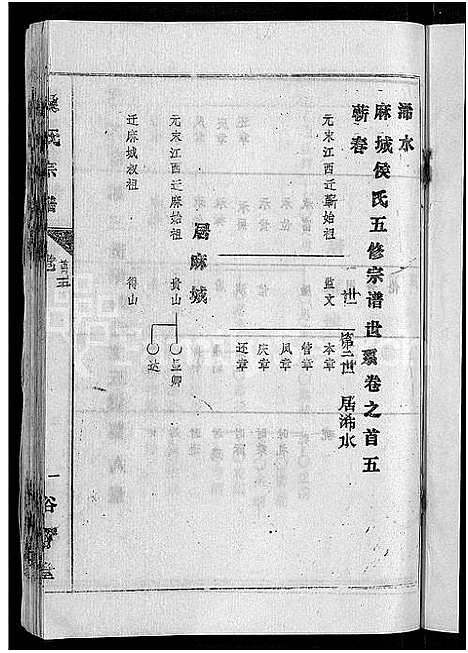 浠水
麻城侯氏五修宗谱世系卷之首五
蕲卷
元末江西迁蕲始祖
监文
世
第二世
居浠水
本章
管章
凤章
庆章
还章
居麻城
元末江西迁麻始祖
贵山
孟卿
达
迁麻城叔祖
得山
氏宗谱
卷
首五
一
谷诒堂